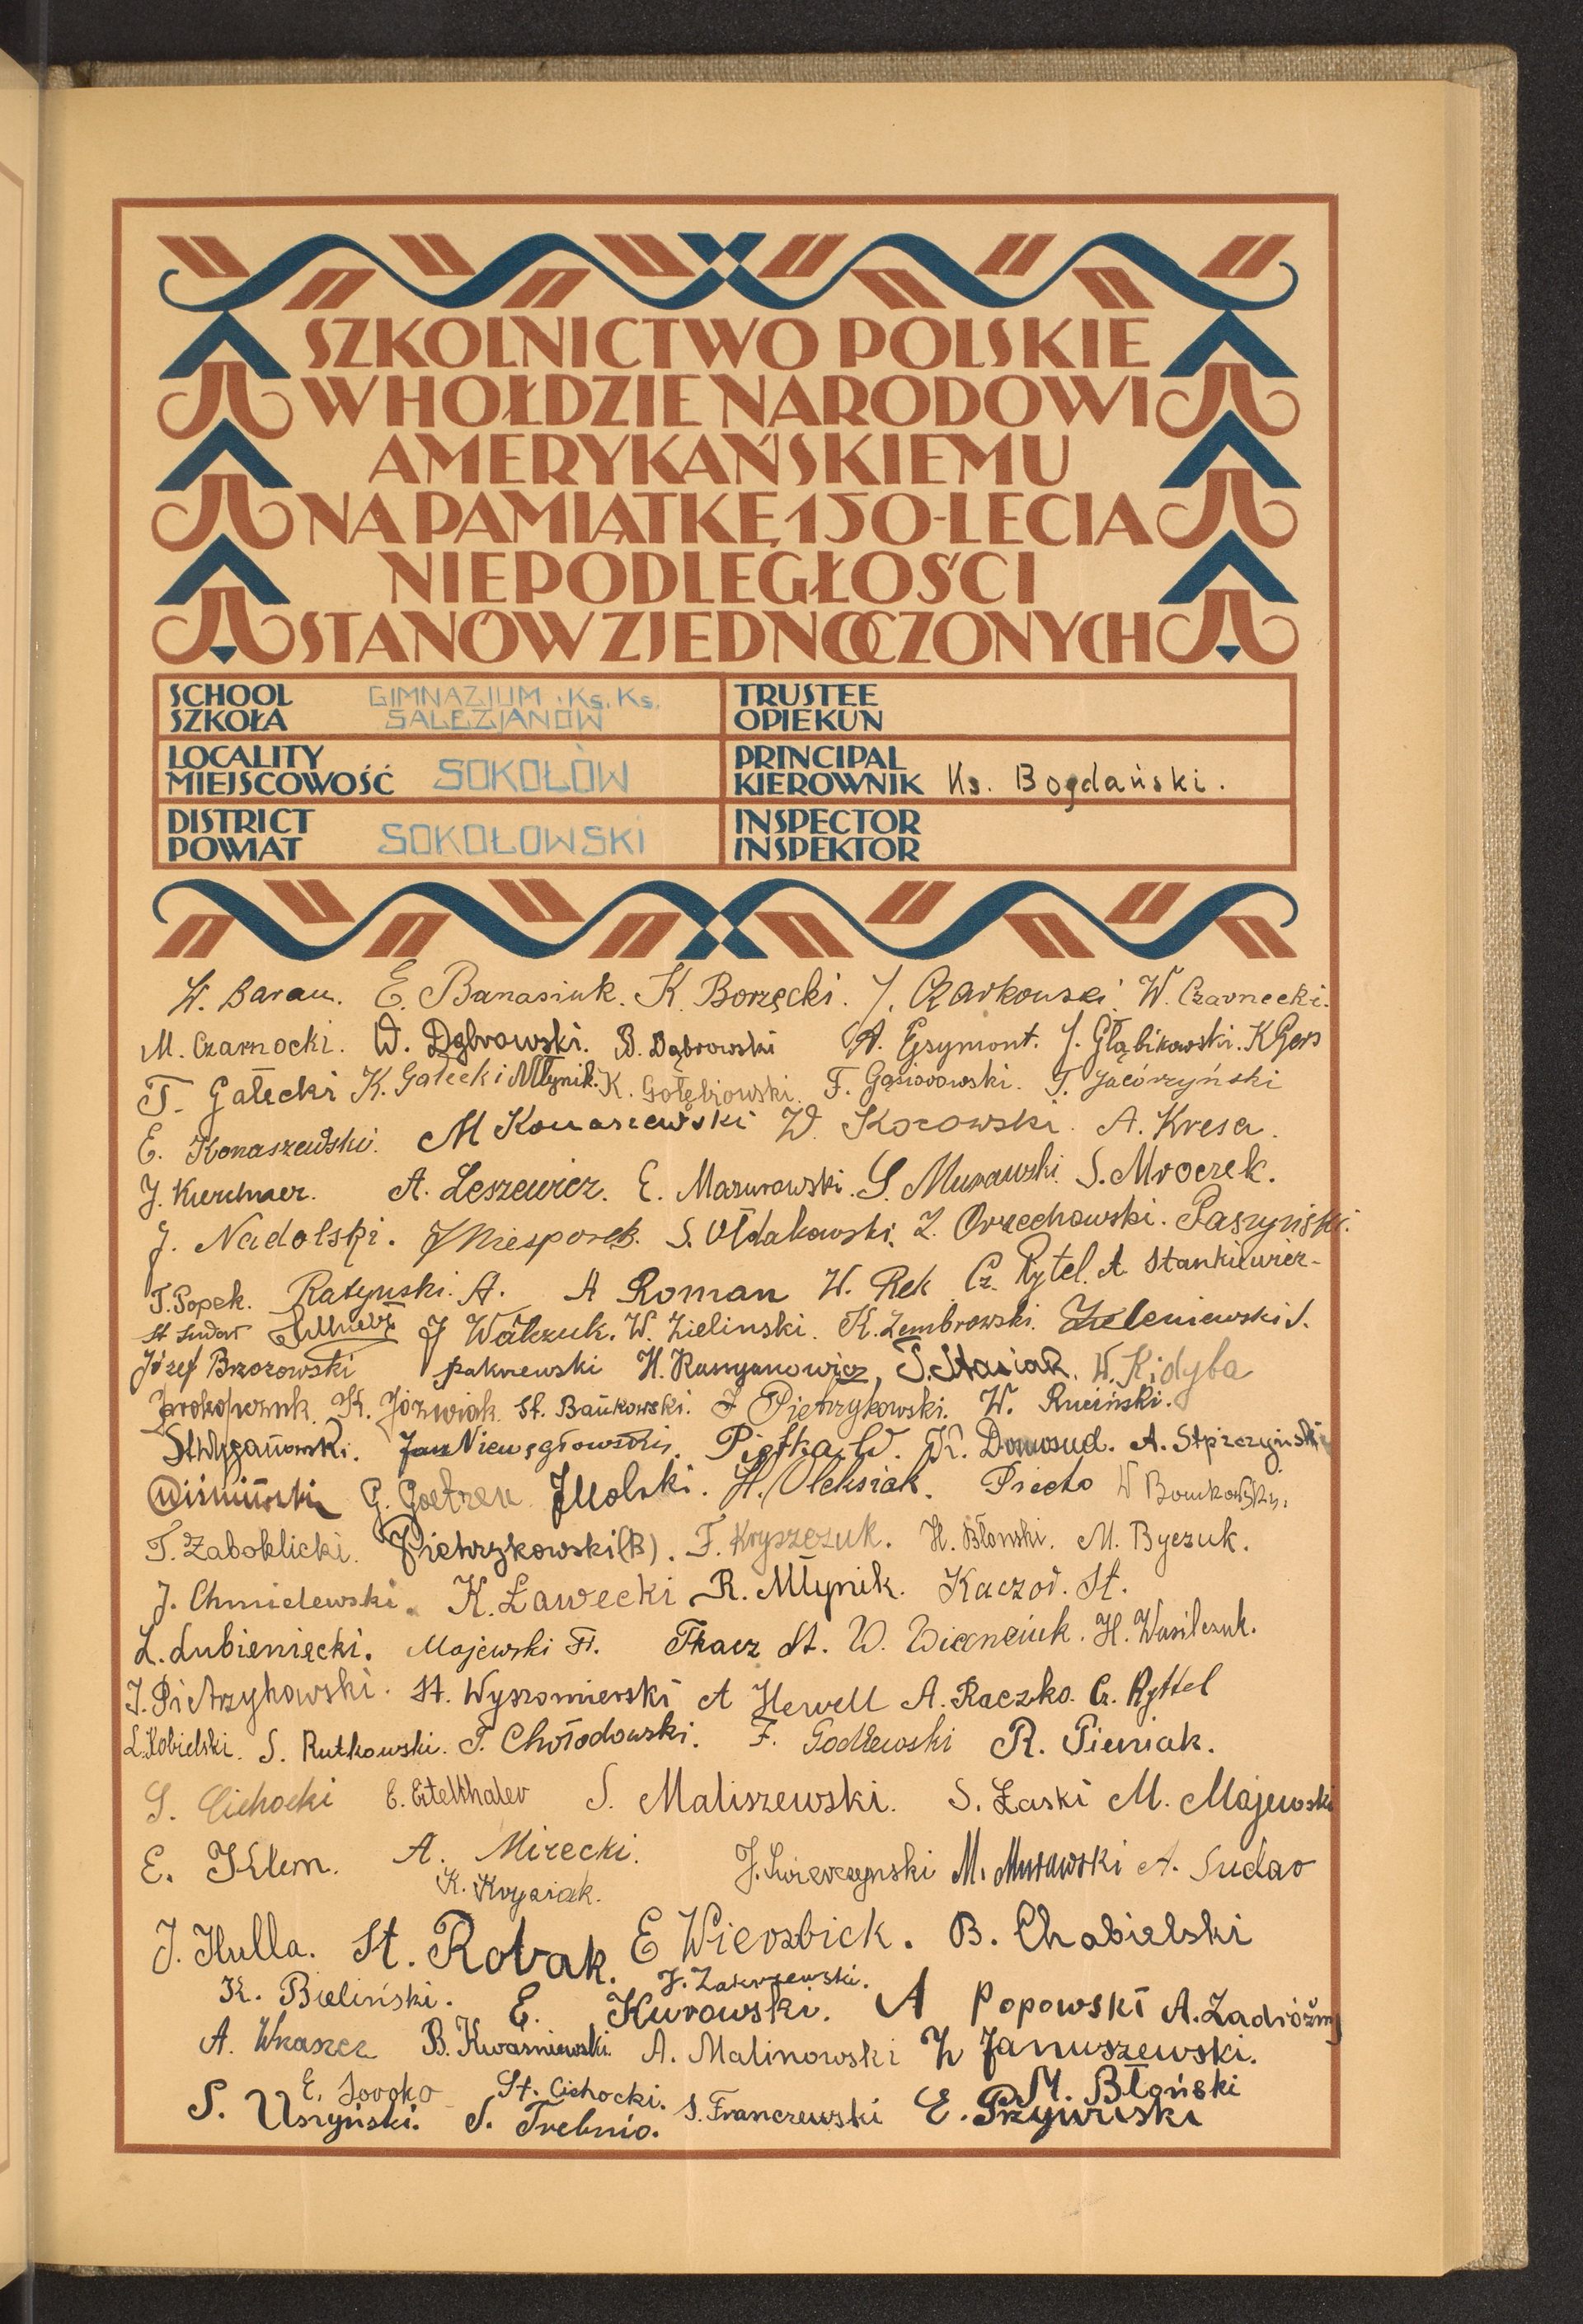 SZKOLNICTWO POLSKIE
W HOŁDZIE NARODOWI
AMERYKAŃSKIEMU
NA PAMIĄTKĘ 150-LECIA
NIEPODLEGŁOŚCI
STANÓW ZJEDNOCZONYCH
SCHOOL GIMNAZJUM Ks. Ks. TRUSTEE
SZKOŁA SALEZJANÓW OPIEKUN
LOCALITY PRINCIPAL
MIEJSCOWOŚĆ SOKOŁÓW KIEROWNIK Ks. Bogdański.
DISTRICT INSPECTOR
POWIAT SOKOŁOWSKI INSPEKTOR
W. Baran. E. Banasiuk. K. Borzęcki. J. Czarkowski W. Czarnecki.
M. Czarnocki. W. Dąbrowski. B. Dąbrowski A. Egsymont. J. Głąbikowski. K Gers
T. Gałecki K. Gałecki Młynik. K. Gołębiowski. F. Gąsiorowski. T. Jacórzyński
E. Konaszewski. M Konaszewski W. Kosowski. A. Kresa.
J. Kirchner. A. Leszewicz. E. Mazurowski. S. Murawski. S. Mroczek.
J. Nadolski. J Niesporek. S. Ołdakowski. Z. Orzechowski. Paszyński.
T. Popek. Ratyński. A. A Roman W. Rek Cz. Rytel. A Stankiewicz.
St Sudoł J Walczuk. W. Zielinski. K. Zembrowski. Zeleniewski S.
Józef Brzozowski pakrewski H. Russyanowicz, S. Stasiak. W. Kidyba
Prokopczuk. K. Jóżwiak. St. Bańkowski. J Pietrzykowski. W. Ruciński.
St Wyganowski. Jan Niewęgłowski. Piotka W. K. Domosud. A. Stpiczyński
Wiśniewski G. Goetzen J Wolski. H. Oleksiak. Priedo W Bonkowski.
T. Zaboklicki. J Pietrzykowski (B). F. Kryszczuk. H. Błoński. M. Byczuk.
J. Chmielewski. K. Ławecki R. Młynik. Kaczor. St.
L. Lubieniecki. Majewski Fr. Tkacz St. W. Wierneiuk. H. Wasilczuk.
J. Pietrzykowski. St. Wyszomierski A Hewell A. Raczko. Cz. Ryttel
L. Kobielski. S. Rutkowski. T. Chołodowski. F. Godlewski R. Pieniak.
S. Cichocki E. Eitelthaler S. Maliszewski. S. Łaski M. Majewski
E. Klem. A. Mirecki. J. Świerczyński M. Murawski A. Sudao
K. Krysiak.
J. Hulla. St. Robak. E Wierzbick. B. Chabielski
K. Bieliński. J. Zakrzewski.
E. Kurowski. A Popowski A. Zadróżny
A. Wkaszcz B. Kwaśniewski. A. Malinowski Z Januszewski.
E. Soroko St. Cichocki. M. Błoński
S. Uszyński. S. Trebnio. S. Franczewski E. Przywiski